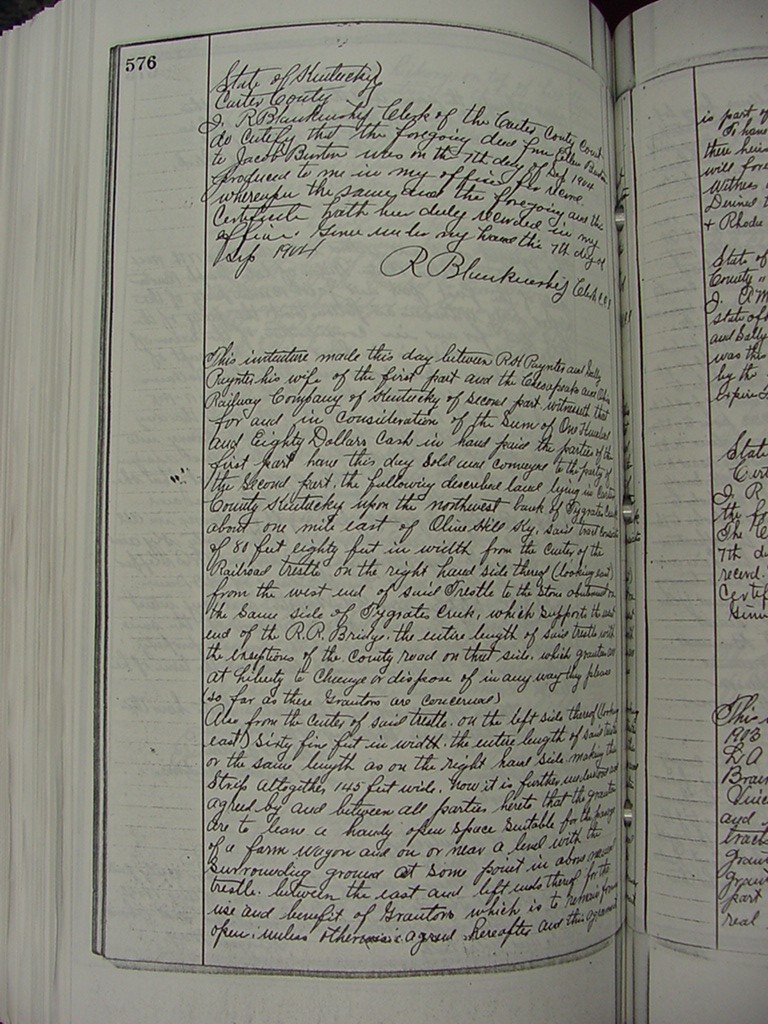 576
State of Kentucky
Carter County
I, R Blankenship Clerk of the Carter County Court
do certify that the foregoing deed from Ellen Burton
to Jacob Burton was on the 7th day of Sep 1904
produced to me in my office for record
whereupon the same and the foregoing and this
Certificate hath been duly recorded in my
office. Given under my hand this 7th day of
Sep 1904
R Blankenship Clerk
This indenture made this day between R H Paynter and Sally
Paynter his wife of the first part and the Chesapeake and Ohio
Railway Company of Kentucky of Second part. witnesseth that
for and in Consideration of the Sum of One Hundred
and Eighty Dollars Cash in hand paid the parties of the
first part have this day Sold and Conveyed to the party of
the Second part. the following described land lying in Carter
County Kentucky upon the northwest bank of Tygrates Creek
about one mile east of Olive Hill Ky. said tract consist
of 80 feet eighty feet in width from the Center of the
Railroad trestle on the right hand side thereof (looking east)
from the west end of said Trestle to the Stone abutment on
the Same side of Tygrates Creek, which supports the west
end of the R.R. Bridge. the entire length of said trestle with
the exceptions of the County road on that side. which grantees are
at Liberty to Change or dispose of in any way they please
(so far as these Grantors are concerned)
Also from the Center of said trestle. on the left side thereof (looking
east) Sixty five feet in width. the entire length of said trestle
or the same length as on the right hand side. making the
Strip altogether 145 feet wide. now it is further understood and
agreed by and between all parties hereto that the grantees
are to leave a handy open space suitable for the passage
of a farm wagon and on or near a level with the
Surrounding ground at some point in above
trestle. between the east and left ends thereof for the
use and benefit of Grantors which is to remain
open; unless otherwise agreed hereafter and this agreement
is part of
To have
there heirs
will fore
Witness
+ Rhoda
State of
County "
state of
and Sally
was this
by the
Expires
State
I. R
the fo
The C
7th d
record.
Certif
Given
This
1903
L A
and
tract
part
real